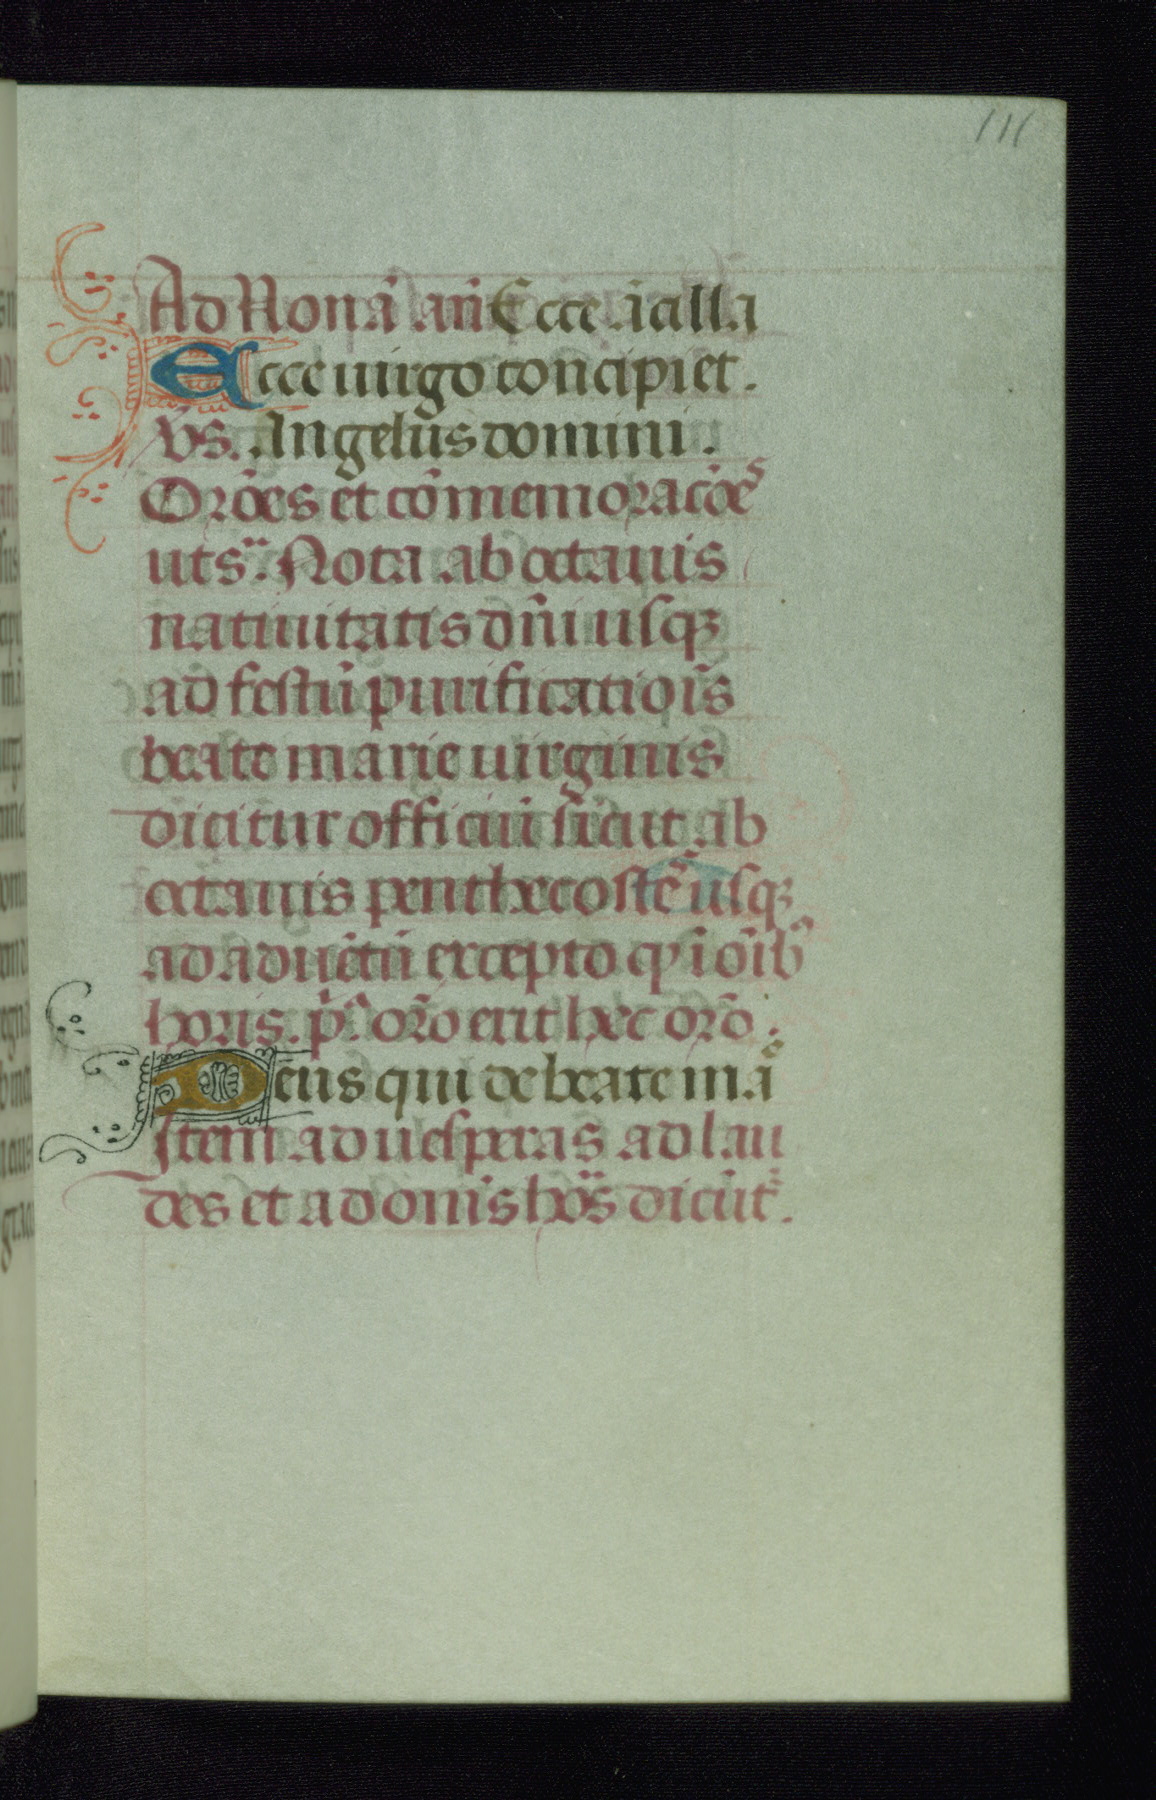 111
Ad Nonā añ Ecce ācilla
Ecce uirgo concipiet.
vs. Angelus domini.
Orões et cōmemoracōes
uts̈. Nota ab octauis
natiuitatis dñi usqꝫ
ad festū purificatiōis
beate marie uirginis
dicitur officiū sicut ab
octauis penthecostēs usqꝫ
ad aduētū excepto ꝙ ī oībꝰ
horis. pꝰ. orō erit hec orō.
Deus qui de beate mā
Item ad uesperas ad lau
des et ad omīs hōs dicūt.